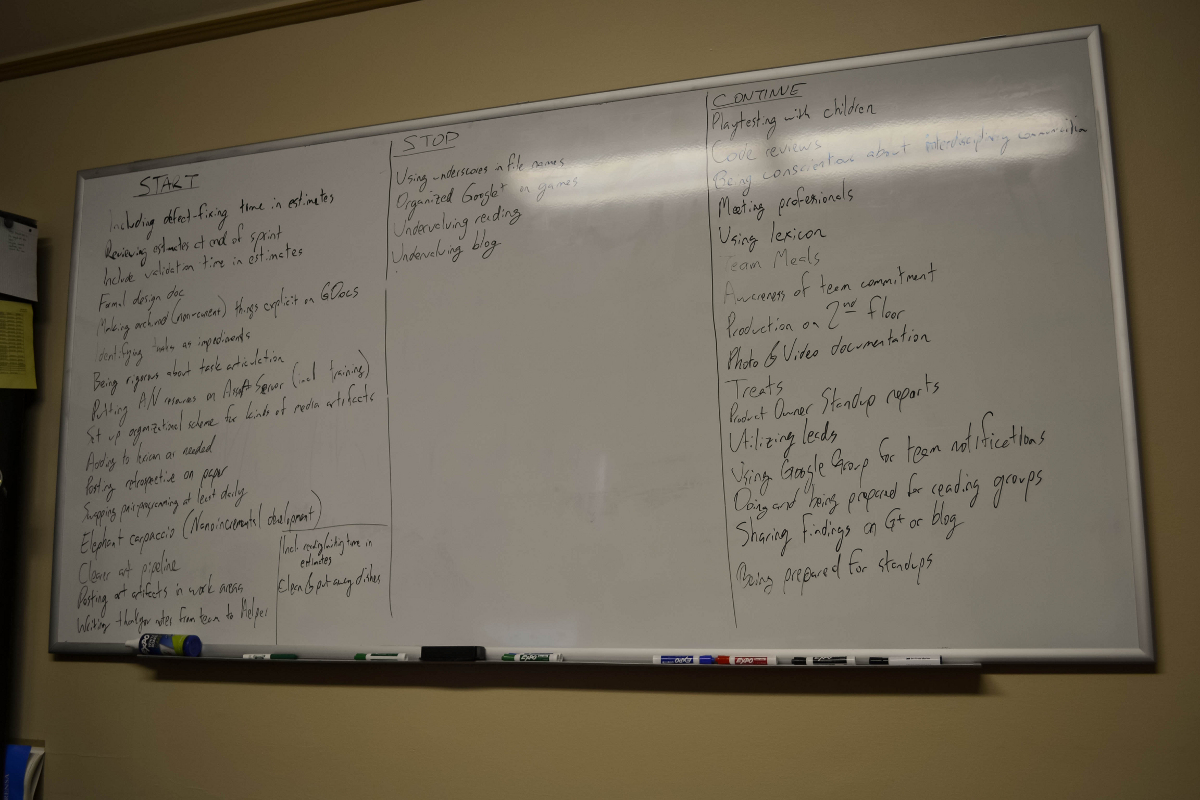 START
Including defect-fixing time in estimates
Reviewing estimates at end of sprint
Include validation time in estimates
Formal design doc
Making archived (non-current) things explicit on GDocs
Identifying tasks as impediments
Being rigorous about task articulation
Putting A/V resources on Asset Server (incl training)
Set up organizational scheme for kinds of media artifacts
Adding to lexicon as needed
Posting retrospective on paper
Swapping pair programming at least daily
Elephant carpaccio (Nanoincremental development)
Cleaner art pipeline
Posting art artifacts in work areas
Writing thank you notes from team to Helper
Incl. reading/writing time in
estimates
Clean & put away dishes
STOP
Using underscores in file names
Organized Google+ on games
Undervaluing reading
Undervaluing blog
CONTINUE
Playtesting with children
Code reviews
Being conscientious about interdisciplinary
Meeting professionals
Using lexicon
Team Meals
Awareness of team commitment
Production on 2nd floor
Photo & Video documentation
Treats
Product Owner Standup reports
Utilizing leads
Using Google Group for team notifications
Doing and being prepared for reading groups
Sharing findings on G+ or blog
Being prepared for standups
EXPO
EXPO
EXPO
EXPO